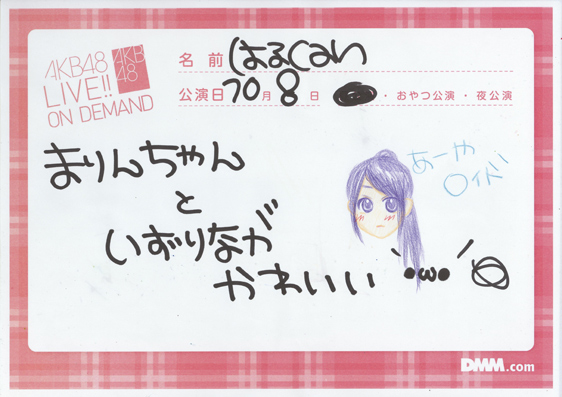 AKB48
LIVE!!
ON DEMAND
AKB
48
名前 はるくらい
公演日 10月8日 ・おやつ公演・夜公演
まりんちゃん
と
いずりなが
かわいい
`•ω•´
あーや
ロイド
DMM.com